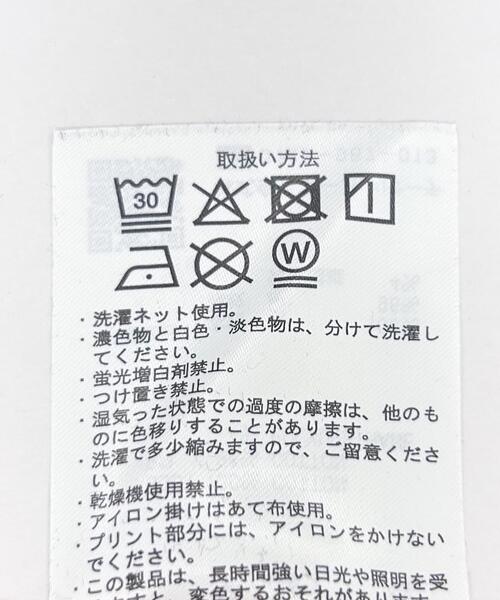 取扱い方法
30
W
・洗濯ネット使用。
・濃色物と白色・淡色物は、分けて洗濯し
てください。
・蛍光増白剤禁止。
・つけ置き禁止。
・湿気った状態での過度の摩擦は、他のも
のに色移りすることがあります。
・洗濯で多少縮みますので、ご留意くださ
い。
・乾燥機使用禁止。
・アイロン掛けはあて布使用。
・プリント部分には、アイロンをかけない
でください。
・この製品は、長時間強い日光や照明を受
けますと、変色するおそれがあります。